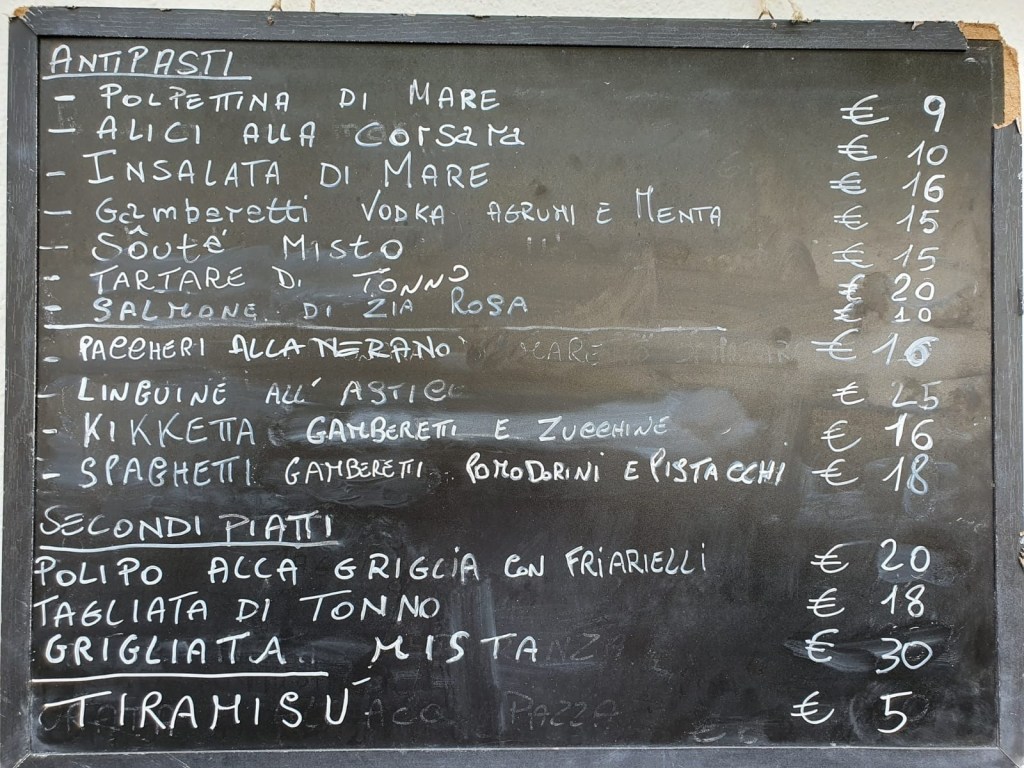 ANTIPASTI
- POLPETTINA DI MARE € 9
- ALICI ALLA CORSARA € 10
- INSALATA DI MARE € 16
- Gamberetti VODKA AGRUMI E MENTA € 15
- Sôuté MISTO € 15
- TARTARE DI TONNO € 20
- SALMONE DI ZIA ROSA € 10
- PACCHERI ALLA NERANO € 16
- LINGUINE ALL' ASTICE € 25
- KIKKETTA GAMBERETI E ZUCCHINE € 16
- SPAGHETTI GAMBERETI POMODORINI E PISTACCHI € 18
SECONDI PIATTI
POLIPO ALLA GRIGLIA CON FRIARIELLI € 20
TAGLIATA DI TONNO € 18
GRIGLIATA MISTA € 30
TIRAMISÚ € 5